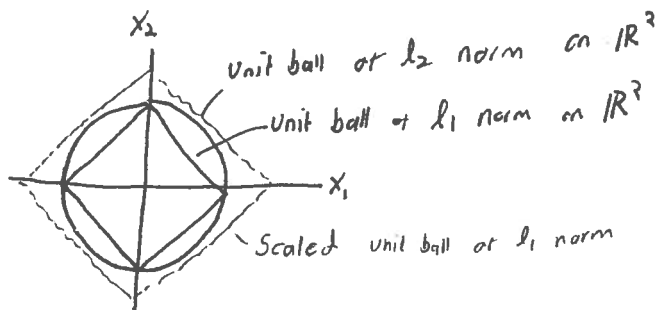 X2
unit ball of l2 norm on R2
unit ball of l1 norm on R2
X1
Scaled unit ball of l1 norm